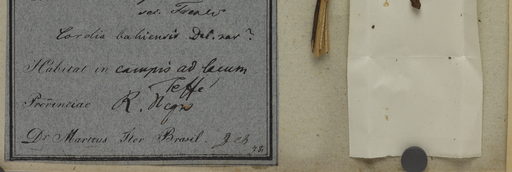 Cordia bahiensis Del. var?
Habitat in campis ad lacum
Teffé
Provinciae R. Negro
Dr Martius Iter Brasil.